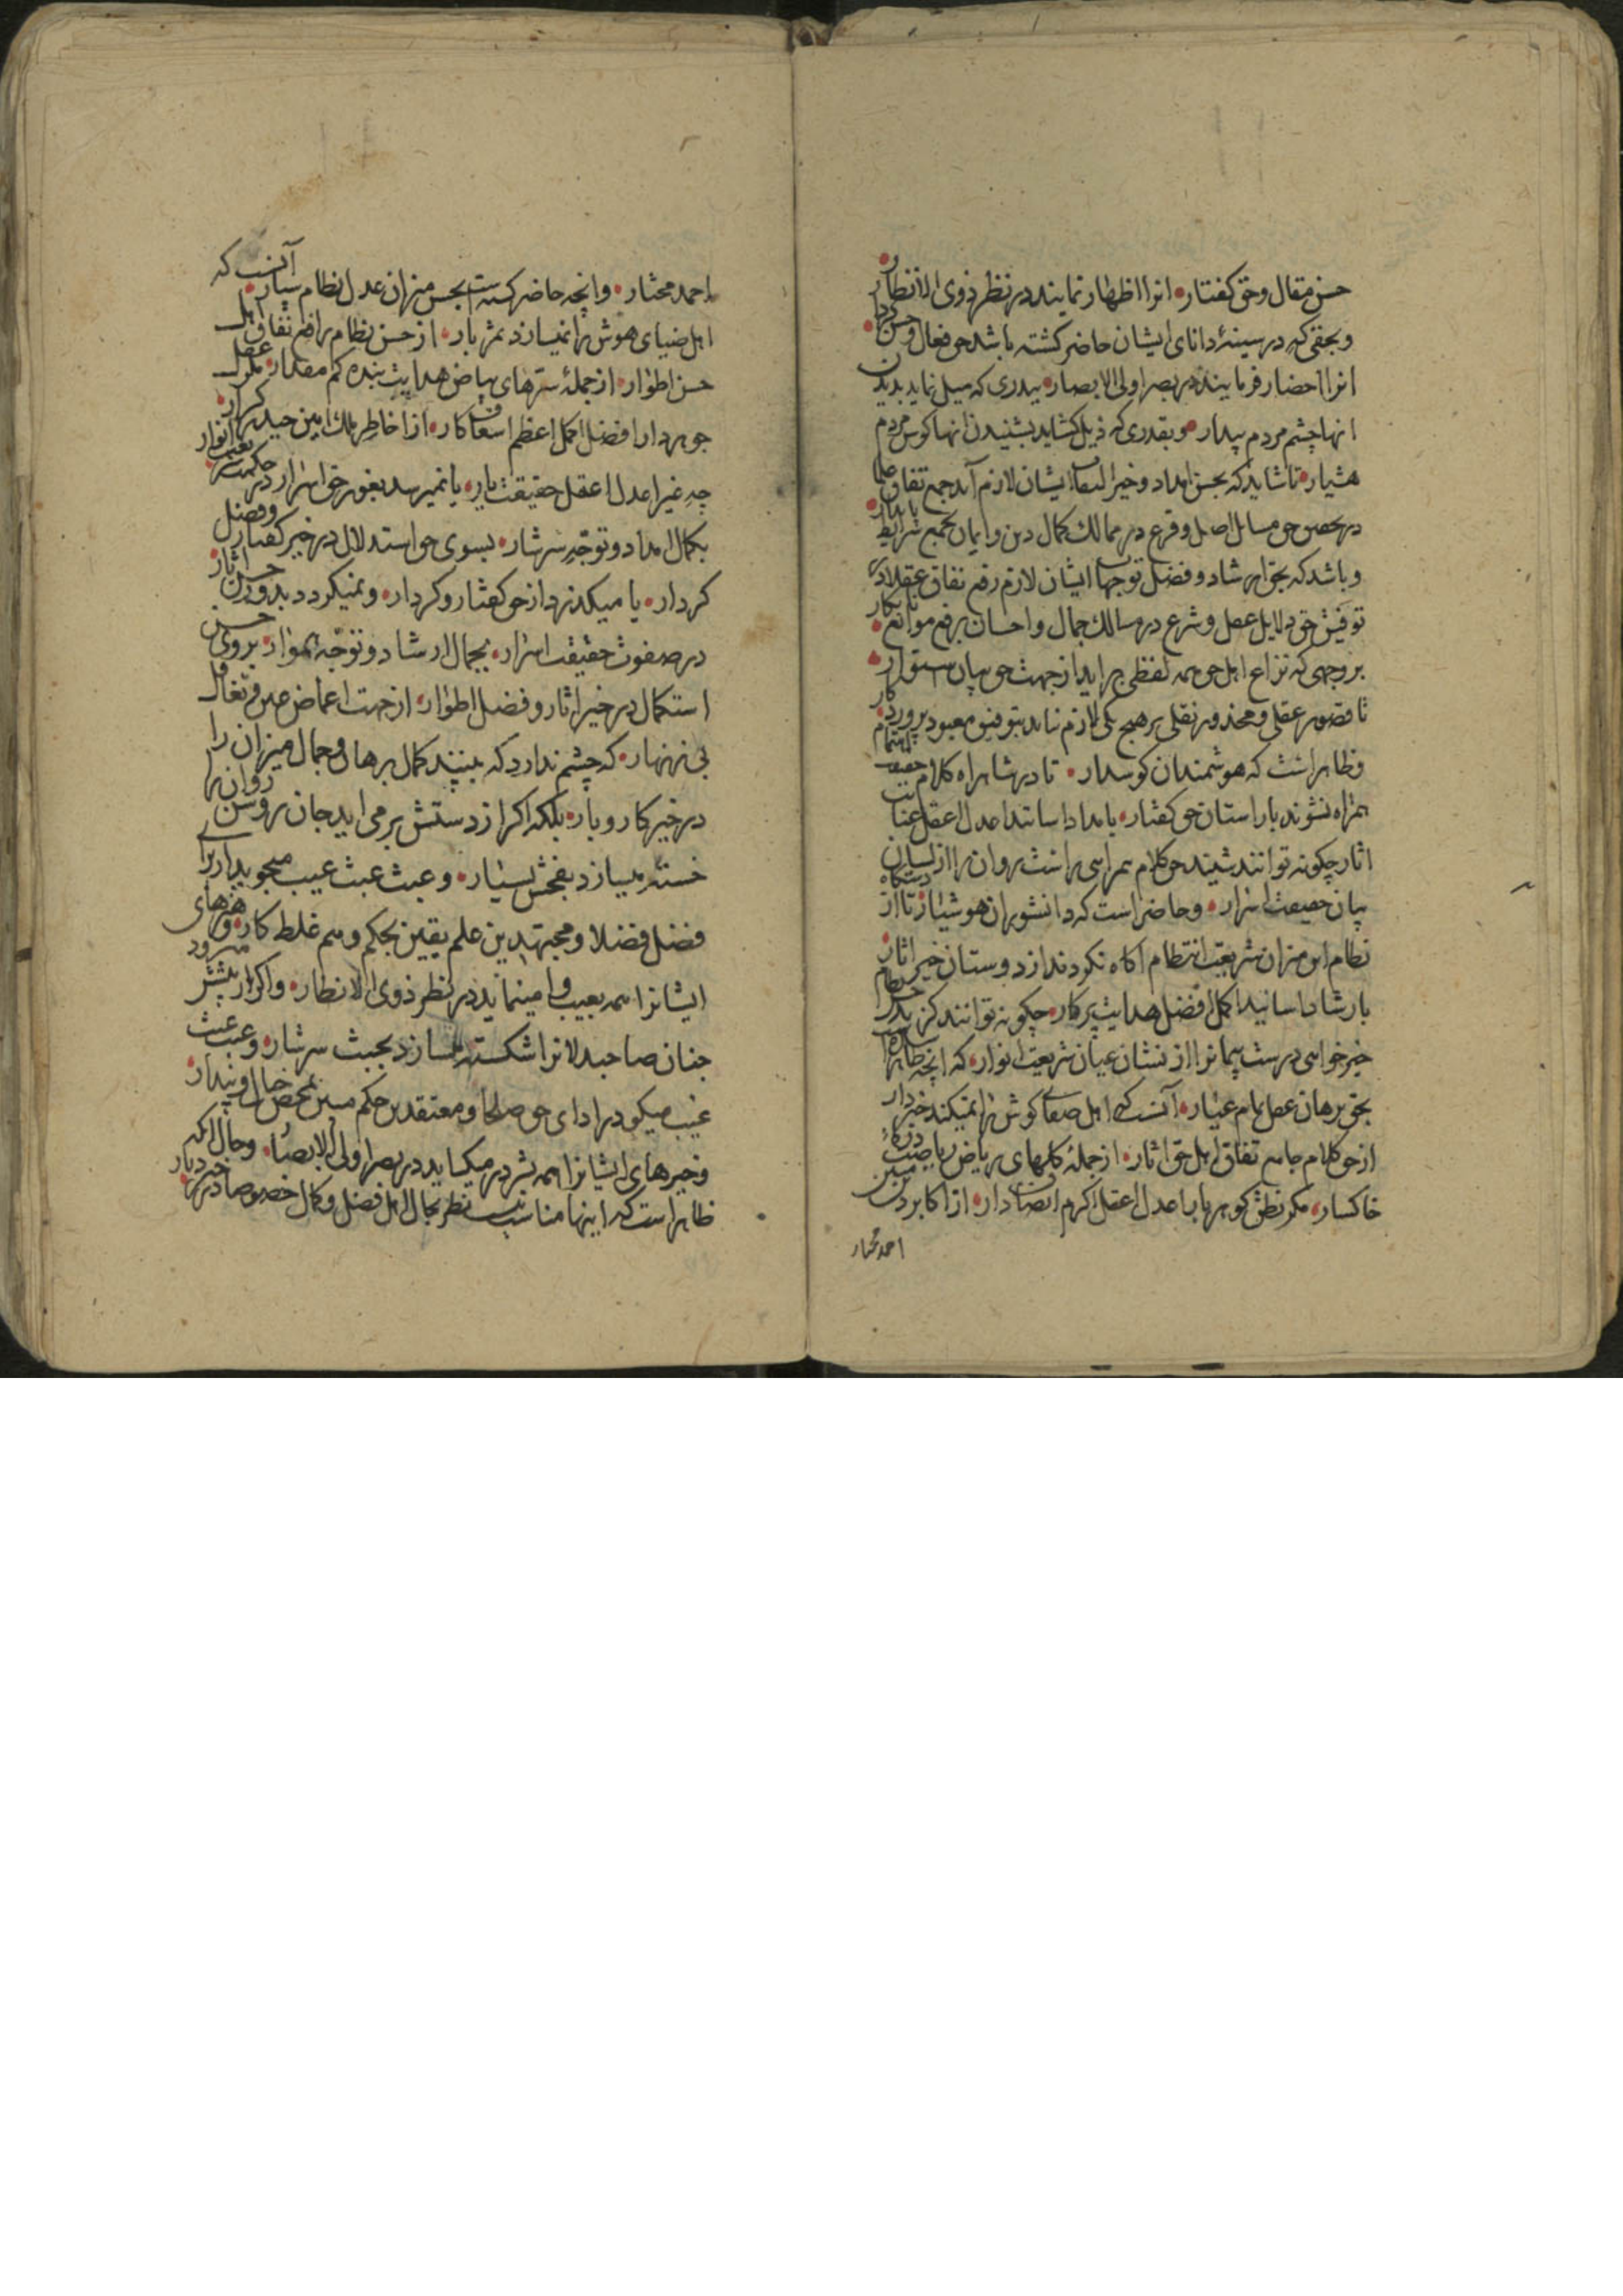 حسن مقال و حق کفتار انرا اظهار نمایند در نظر ذوی الانظار
و بحقی که در سینهٔ دانای ایشان حاضر کشته باشد حق فعال و حسن کردار
انرا احضار فرمایند در بصر اولی الابصار بقدری که میل نماید بدیدن
انها چشم مردم بیدار و بقدری که ذیل کشاید بشنیدن انها کوش مردم
هشیار تا شاید که بحسن امداد و خیر التفات ایشان لازم آید جمع تفاق علما
در بعضی حق مسایل اصل و فرع در ممالک کمال دین و ایمان بجمیع شرایط پایدار
و باشد که بحق ارشاد و فضل توجهات ایشان لازم رفع نفاق عقلا در
توفیق حق دلایل عقل و شرع در مسالک جمال و احسان برفع موانع نابکار
بر وجهی که نزاع اهل حق همه لفظی براید از جهت حق بیان ستوار
تا قصور عقلی و محذور نقلی بر هیچ یکی لازم نیاید بتوفیق معبود پروردکار
و ظاهر است که هوشمندان کوسدار تا در شاهراه کلام حقیقت
همراه نشوند با راستان حق کفتار بامداد اساتید اعدل اعقل عنایت
اثار چکونه توانند شنید حق کلام سراسر راست روان را از لسان
بیان حقیقت اسرار و حاضر است که دانشوران هوشیار تا از دستکاه
نظام این میزان شریعت انتظام آکاه نکردند از دوستان خیر اثار
بارشاد اسانید اکمل افضل هدایت پرکار چکونه توانند کزید
خیر خواهی درست پیمانرا از نشان عیان شریعت انوار که انچه ظاهر
بحق برهان عقل تمام عیار آنست که اهل صفای کوش را نمیکند خبردار
از حق کلام جامع تفاق اهل حق اثار از جملهٔ کلهای ریاض ریاضت
خاکسار مکر نطق کوهر بار اعدل اعقل اکرم انصاف دار از اکابر دین مبین
احمد مختار
احمد مختار و انچه حاضر کشته است بحسن میزان عدل نظام بسیار آنست که
اهل ضیای هوش را نمیسازد ثمر بار از حسن نظام رافع نفاق اهل
حسن اطوار از جملهٔ سترهای بیاض هدایت بنده کم مقدار مکر عقل
جوهردار افضل اکمل اعظم اسعاف کار از اخاطر ملک امین حیدر کرار
چه غیر اعدل اعقل حقیقت یار یا نمیرسد بغور حق اسرار در حکمت انوار
بکمال امداد و توجه سرشار بسوی حق استدلال در خیر کفتار و فضل
کردار یا میکذرد از حق کفتار و کردار و نمیکردد بدور حسن اثار
در صفوت حقیقت اسرار بجمال ارشاد و توجه انوار بروی حسن
استکمال در خیر اثار و فضل اطوار از جهت اعماض عین و تغافل
بی زنهار که چشم ندارد که بیند کمال برهان و جمال میزان را
در خیر کار و بار بلکه اکر از دستش بر می اید جان روشن روان را
خسته میسازد بفحش بسیار و عبث عبث عیب میجوید از برای
فضل فضلا و مجتهدین علم یقین بحکم وهم غلط کار و هنرهای
ایشانرا همه بعیب وا مینماید در نظر ذوی الانظار و اکر از پیشتر میرود
جنان صاحبدلانرا شکسته میسازد بخبث سرشار و عبث عبث
غیب میکود در ادای حق صلحا و معتقدین حکم مبین بمحض خیال و پندار
و خیرهای ایشانرا همه بشر در میکشاید در بصر اولی الابصار و حال انکه
ظاهر است که اینها مناسب نیست نظر بحال اهل فضل و کمال خصوصا در